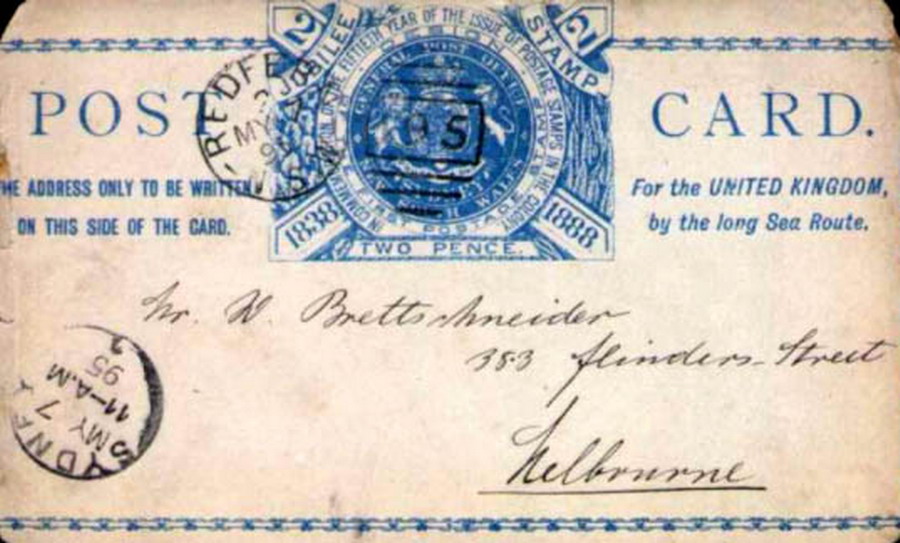 2 JUBILEE STAMP 2
IN COMMEMORATION OF THE FIFTIETH YEAR OF THE ISSUE OF POSTAGE STAMPS IN THE COLONY
POST CARD.
THE ADDRESS ONLY TO BE WRITTEN
ON THIS SIDE OF THE CARD.
For the UNITED KINGDOM,
by the long Sea Route.
1838 1888
TWO PENCE.
REDFE
MY
N.S.W
Mr. W. Brettschneider
383 Flinders Street
Melbourne
SYDNEY
MY 7
11-A.M
95
2